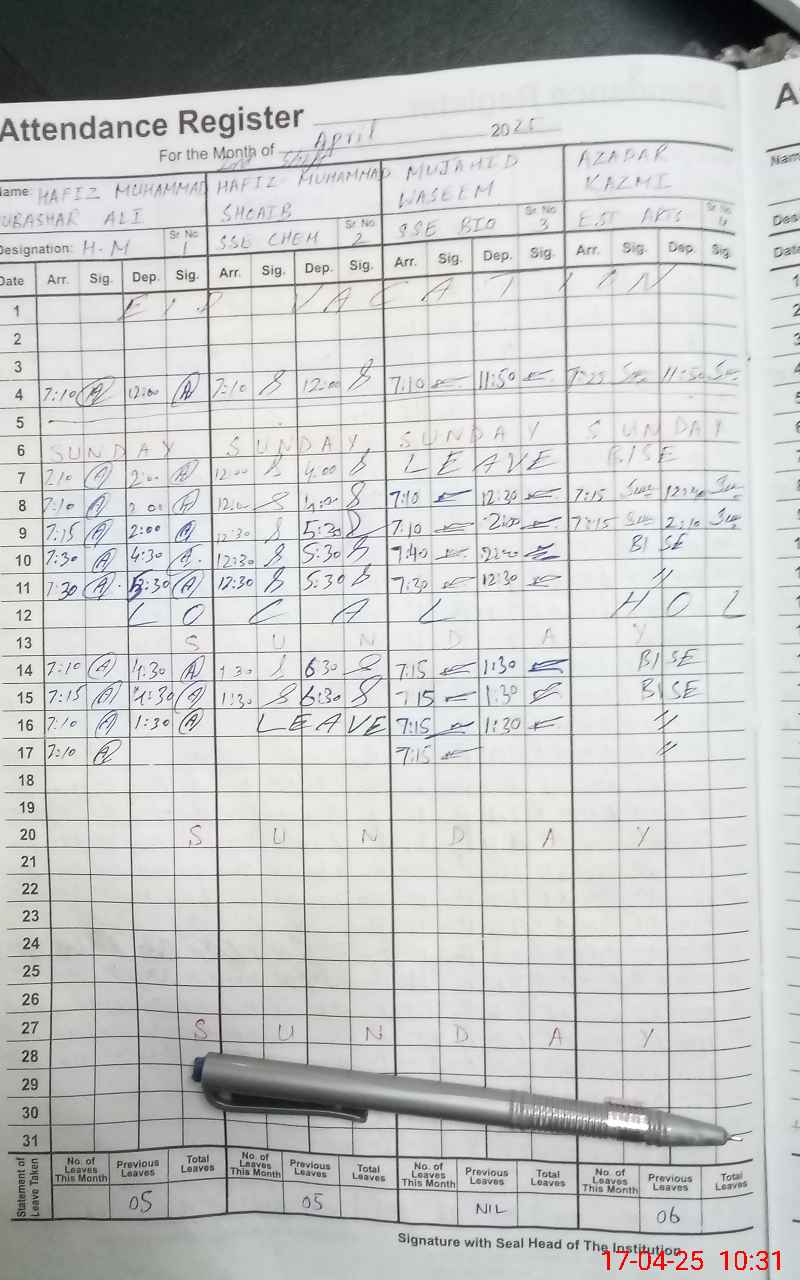 Attendance Register
For the Month of April 2025
Name: HAFIZ MUHAMMAD HAFIZ MUHAMMAD MUJAHID AZADAR
UBASHAR ALI SHOAIB WASEEM KAZMI
Designation: H-M Sr No 1 SSE CHEM Sr No 2 SSE BIO Sr No 3 EST ARTS Sr No 4
Date Arr. Sig. Dep. Sig. Arr. Sig. Dep. Sig. Arr. Sig. Dep. Sig. Arr. Sig. Dep. Sig.
1 EID VACATION
2
3
4 7:10 A 12:00 A 7:10 12:00 7:10 11:50 7:25 11:50
5
6 SUNDAY SUNDAY SUNDAY SUNDAY
7 7:10 A 2:00 A 12:00 4:00 LEAVE BISE
8 7:10 A 2:00 A 7:10 12:30 7:15
9 7:15 A 2:00 A 12:30 5:30 7:10 2:00 2:10
10 7:30 A 4:30 A 12:30 5:30 7:40 BISE
11 7:30 A 3:30 A 12:30 5:30 7:30 12:30 〃
12 LOCAL HOL
13 SUNDAY
14 7:10 A 4:30 A 1:30 6:30 7:15 1:30 BISE
15 7:15 A 4:30 A 1:30 6:30 7:15 1:30 BISE
16 7:10 A 1:30 A LEAVE 7:15 1:30 〃
17 7:10 A 7:15 〃
18
19
20 SUNDAY
21
22
23
24
25
26
27 SUNDAY
28
29
30
31
Statement of Leave Taken No. of Leaves This Month Previous Leaves Total Leaves No. of Leaves This Month Previous Leaves Total Leaves No. of Leaves This Month Previous Leaves Total Leaves No. of Leaves This Month Previous Leaves Total Leaves
05 05 NIL 06
Signature with Seal Head of The Institution
17-04-25 10:31